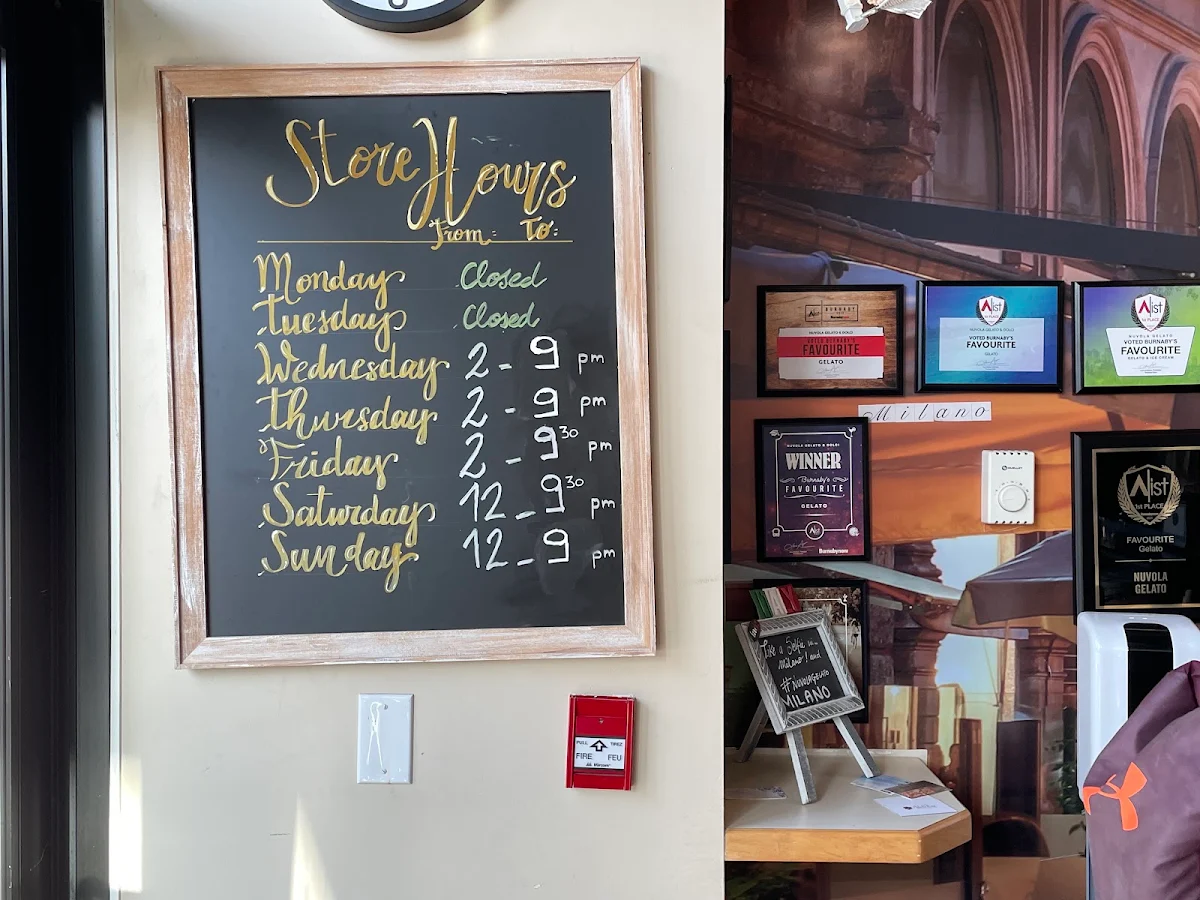 Store Hours
From: To:
Monday Closed
Tuesday Closed
Wednesday 2 - 9 pm
Thursday 2 - 9 pm
Friday 2 - 9 30 pm
Saturday 12 - 9 30 pm
Sunday 12 - 9 pm
PULL TIREZ
FIRE FEU
BURNABY
FAVOURITE
GELATO
Alist
1st PLACE
NUVOLA GELATO & DOLCI
VOTED BURNABY'S
FAVOURITE
GELATO
Alist
1st PLACE
NUVOLA GELATO
VOTED BURNABY'S
FAVOURITE
GELATO & ICE CREAM
Milano
NUVOLA GELATO & DOLCI
WINNER
Burnaby's
FAVOURITE
GELATO
Alist
Burnabynow
Alist
1st PLACE
FAVOURITE
Gelato
NUVOLA
GELATO
Take a Selfie in...
Milano! and
#NUVOLAGELATO
MILANO